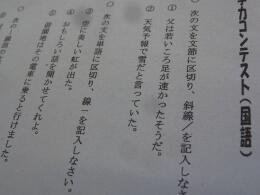 チカコンテスト(国語)
○ 次の文を文節に区切り、斜線/を記入しな
① 父は若いころ足が速かったそうだ。
② 天気予報で雪だと言っていた。
○ 次の文を単語に区切り、線一を記入しなさい。
① 空に美しい虹が出た。
② おもしろい話を聞かせてくれよ。
③ 遊園地はその電車に乗ると行けました。
○ 次の